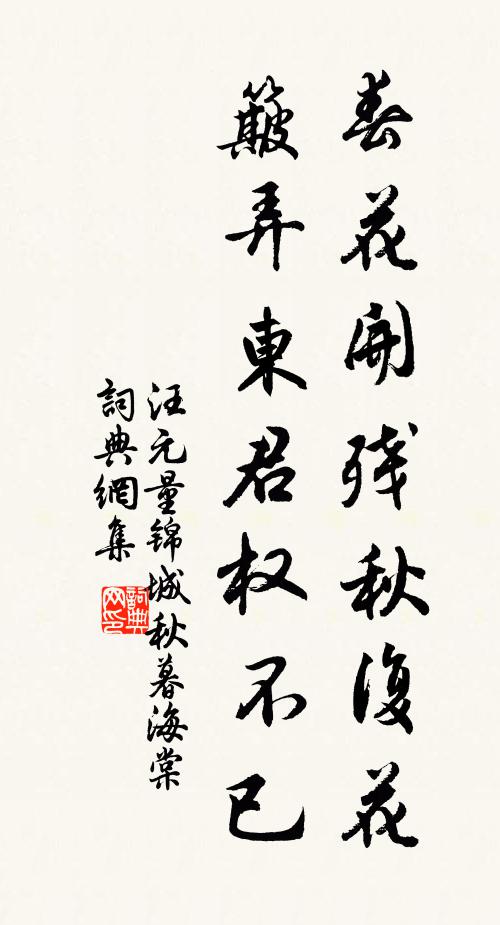 春花開残秋復花
簸弄東君权不已
汪元量錦城秋暮海棠
詞典網集
詞典网印